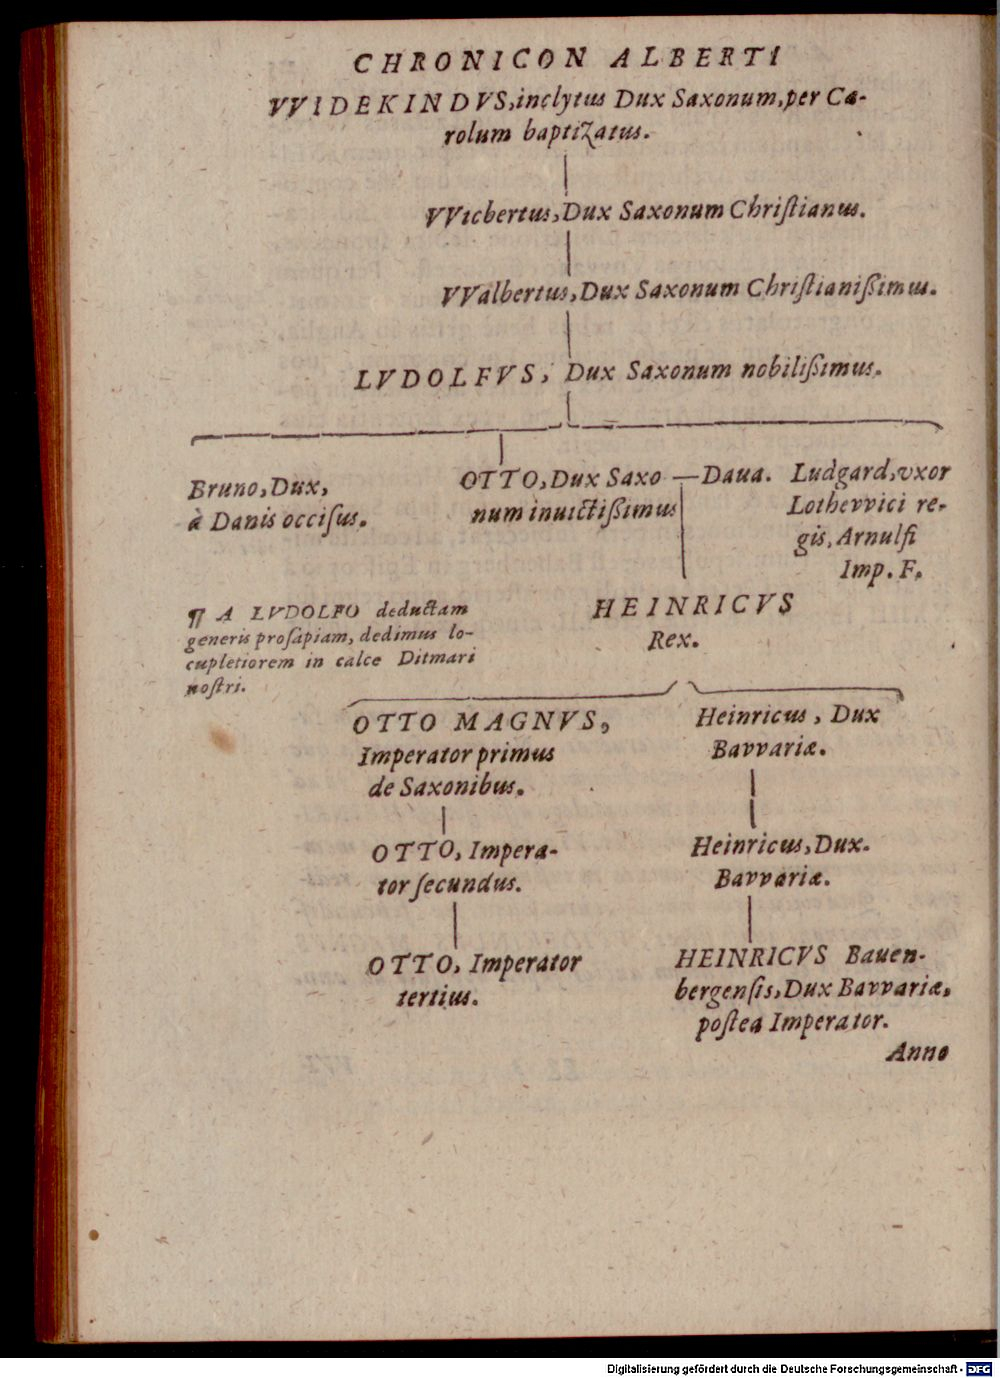 CHRONICON ALBERTI
VVIDEKINDVS, inclytus Dux Saxonum, per Ca-
rolum baptizatus.
VVicbertus, Dux Saxonum Chriſtianus.
VValbertus, Dux Saxonum Chriſtianiſsimus.
LVDOLFVS, Dux Saxonum nobiliſsimus.
Bruno, Dux,
à Danis occiſus.
OTTO, Dux Saxo — Daua.
num inuictiſsimus
Ludgard, vxor
Lothevvici re-
gis, Arnulfi
Imp. F.
HEINRICVS
Rex.
¶ A LVDOLFO deductam
generis proſapiam, dedimus lo-
cupletiorem in calce Ditmari
noſtri.
OTTO MAGNVS,
Imperator primus
de Saxonibus.
Heinricus, Dux
Bavvariæ.
OTTO, Impera-
tor ſecundus.
Heinricus, Dux.
Bavvariæ.
OTTO, Imperator
tertius.
HEINRICVS Bauen-
bergenſis, Dux Bavvariæ,
poſtea Imperator.
Anno
Digitalisierung gefördert durch die Deutsche Forschungsgemeinschaft - DFG